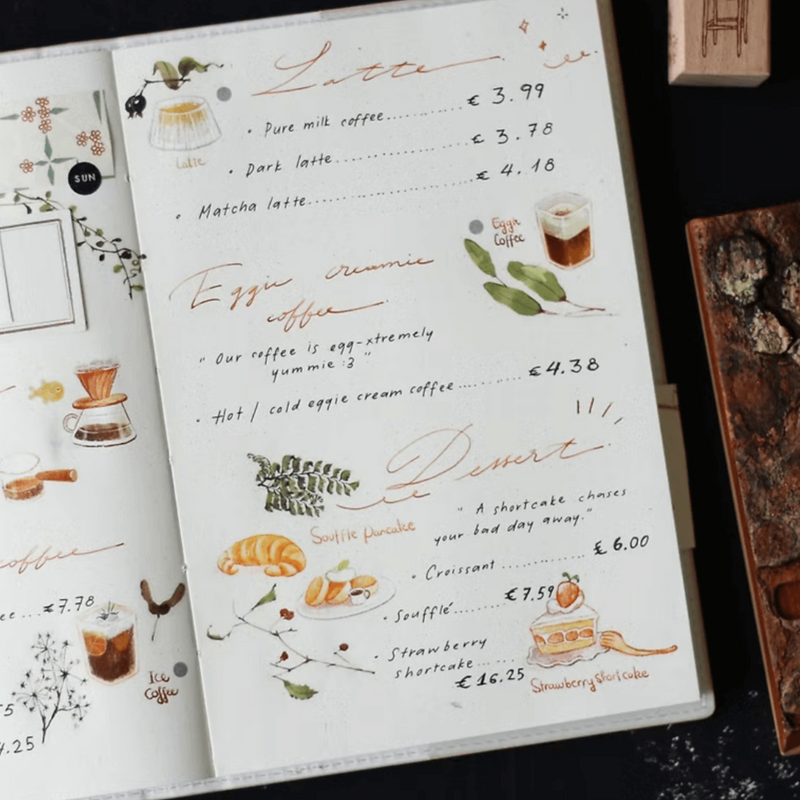 SUN
coffee
ee...€7.78
Ice
Coffee
4.25
Latte
Latte
• Pure milk coffee........... € 3.99
• Dark latte.................... € 3.78
• Matcha latte...................... € 4.18
Eggie
Coffee
Eggie creamie
coffee
" Our coffee is egg-xtremely
yummie :3 "
• Hot / cold eggie cream coffee.......... €4.38
Dessert
" A shortcake chases
your bad day away."
Souffle pancake
• Croissant ............. € 6.00
• Soufflé......... € 7.59
• Strawberry
shortcake......
€ 16.25
Strawberry Shortcake